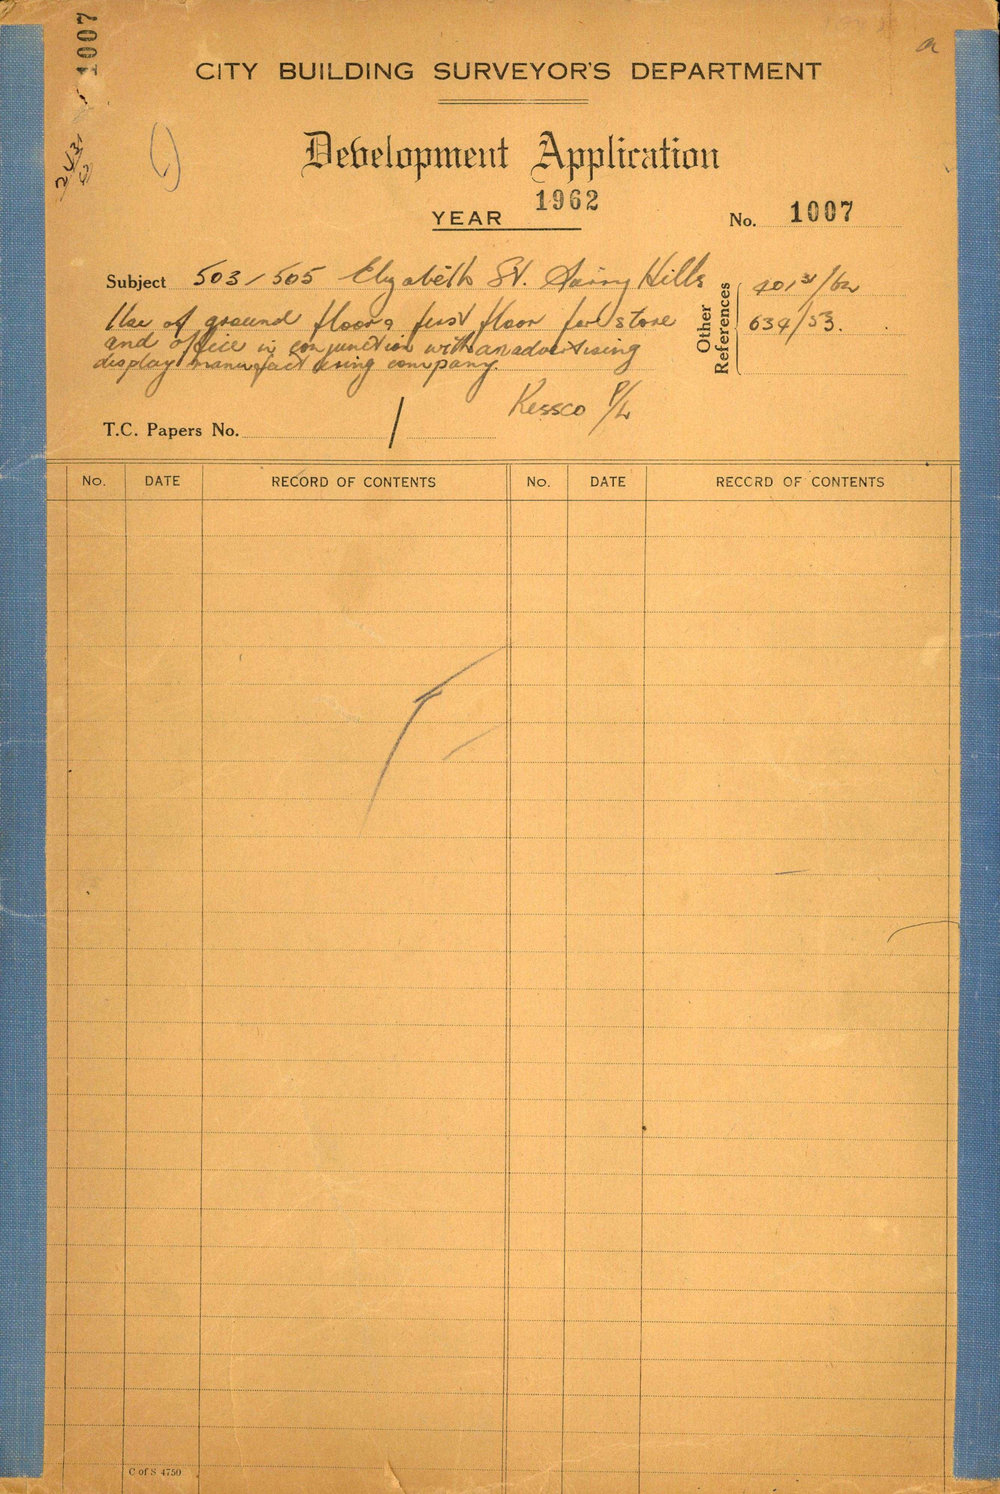 1007
CITY BUILDING SURVEYOR'S DEPARTMENT
Development Application
YEAR 1962
No. 1007
Subject 503/505 Elizabeth St. Surry Hills
Use of ground floor & first floor for store
and office in conjunction with an advertising
display manufacturing company.
Ressco P/L
Other References
634/53.
T.C. Papers No. /
No. DATE RECORD OF CONTENTS No. DATE RECORD OF CONTENTS
C of S 4750